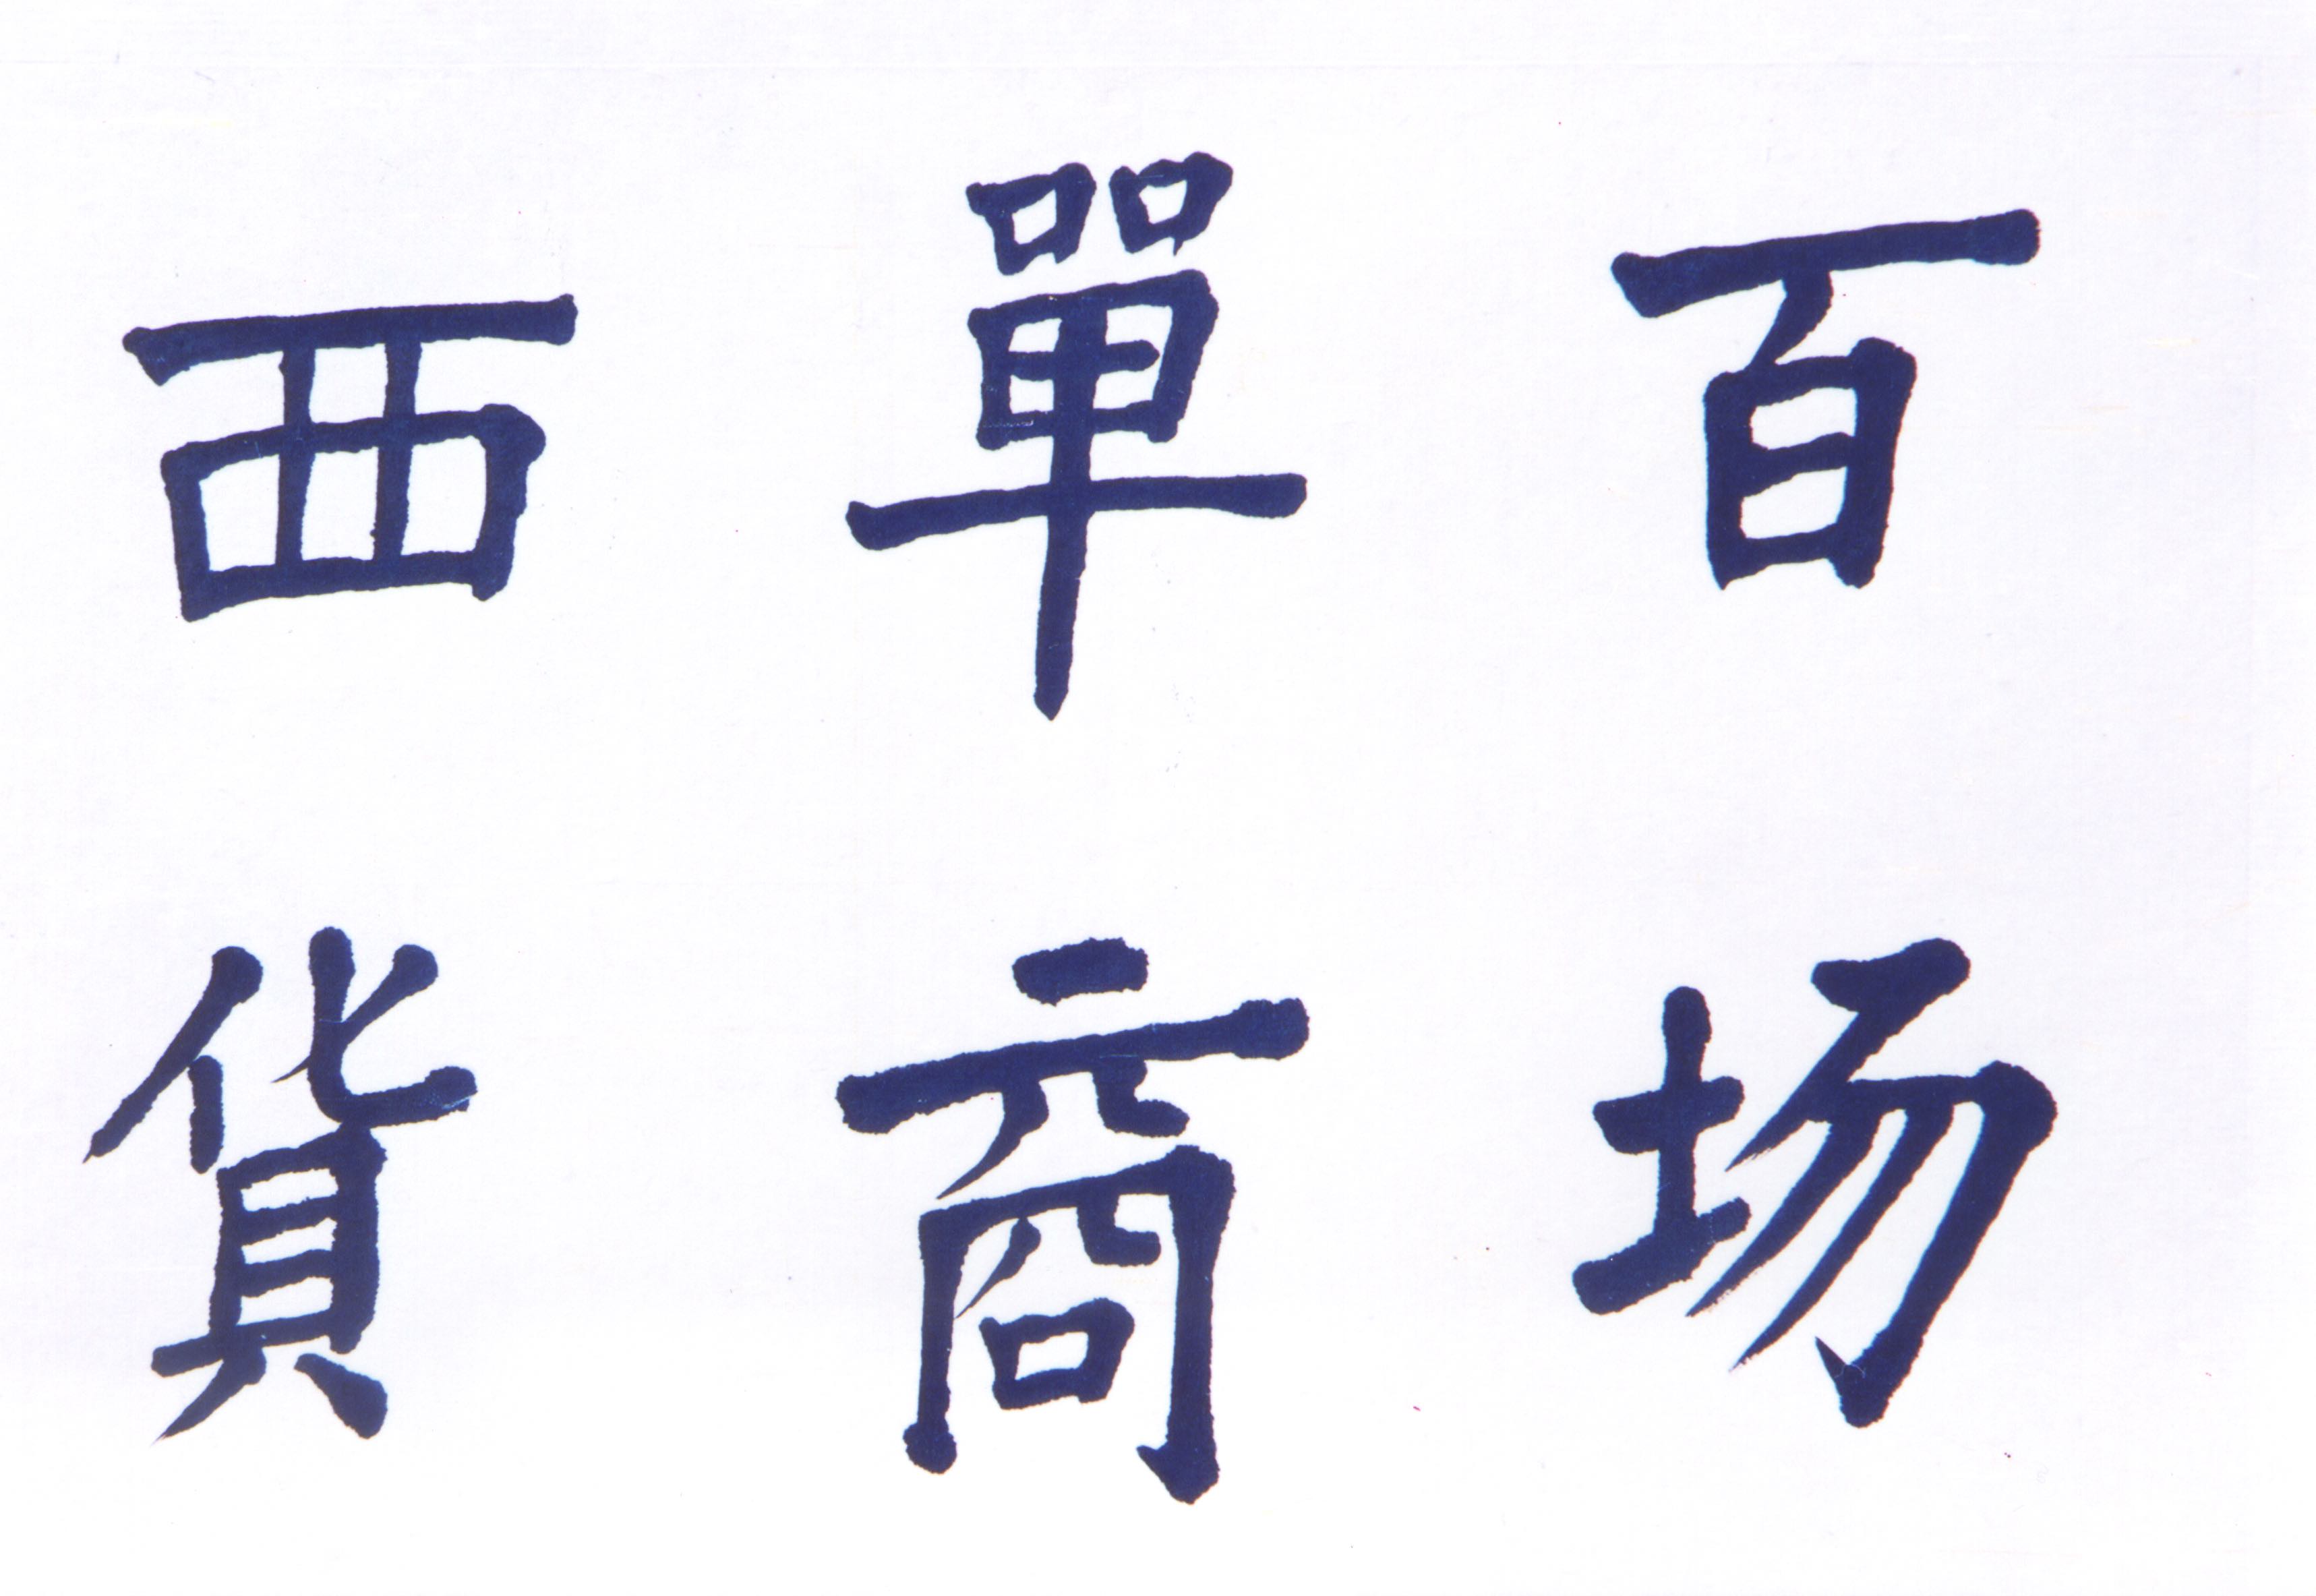 西單百
貨商场